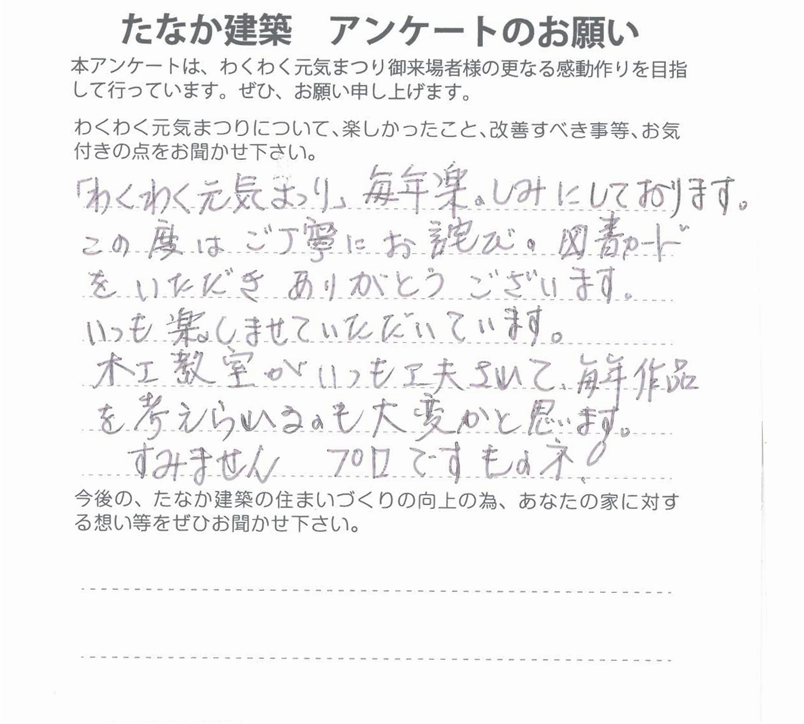 たなか建築 アンケートのお願い
本アンケートは、わくわく元気まつり御来場者様の更なる感動作りを目指
して行っています。ぜひ、お願い申し上げます。
わくわく元気まつりについて、楽しかったこと、改善すべき事等、お気
付きの点をお聞かせ下さい。
「わくわく元気まつり」毎年楽しみにしております。
この度はご丁寧にお詫び。図書カード
をいただきありがとうございます。
いつも楽しませていただいています。
木工教室がいつも工夫されて、毎年作品
を考えられるのも大変かと思います。
すみません プロですものネ!
今後の、たなか建築の住まいづくりの向上の為、あなたの家に対す
る想い等をぜひお聞かせ下さい。